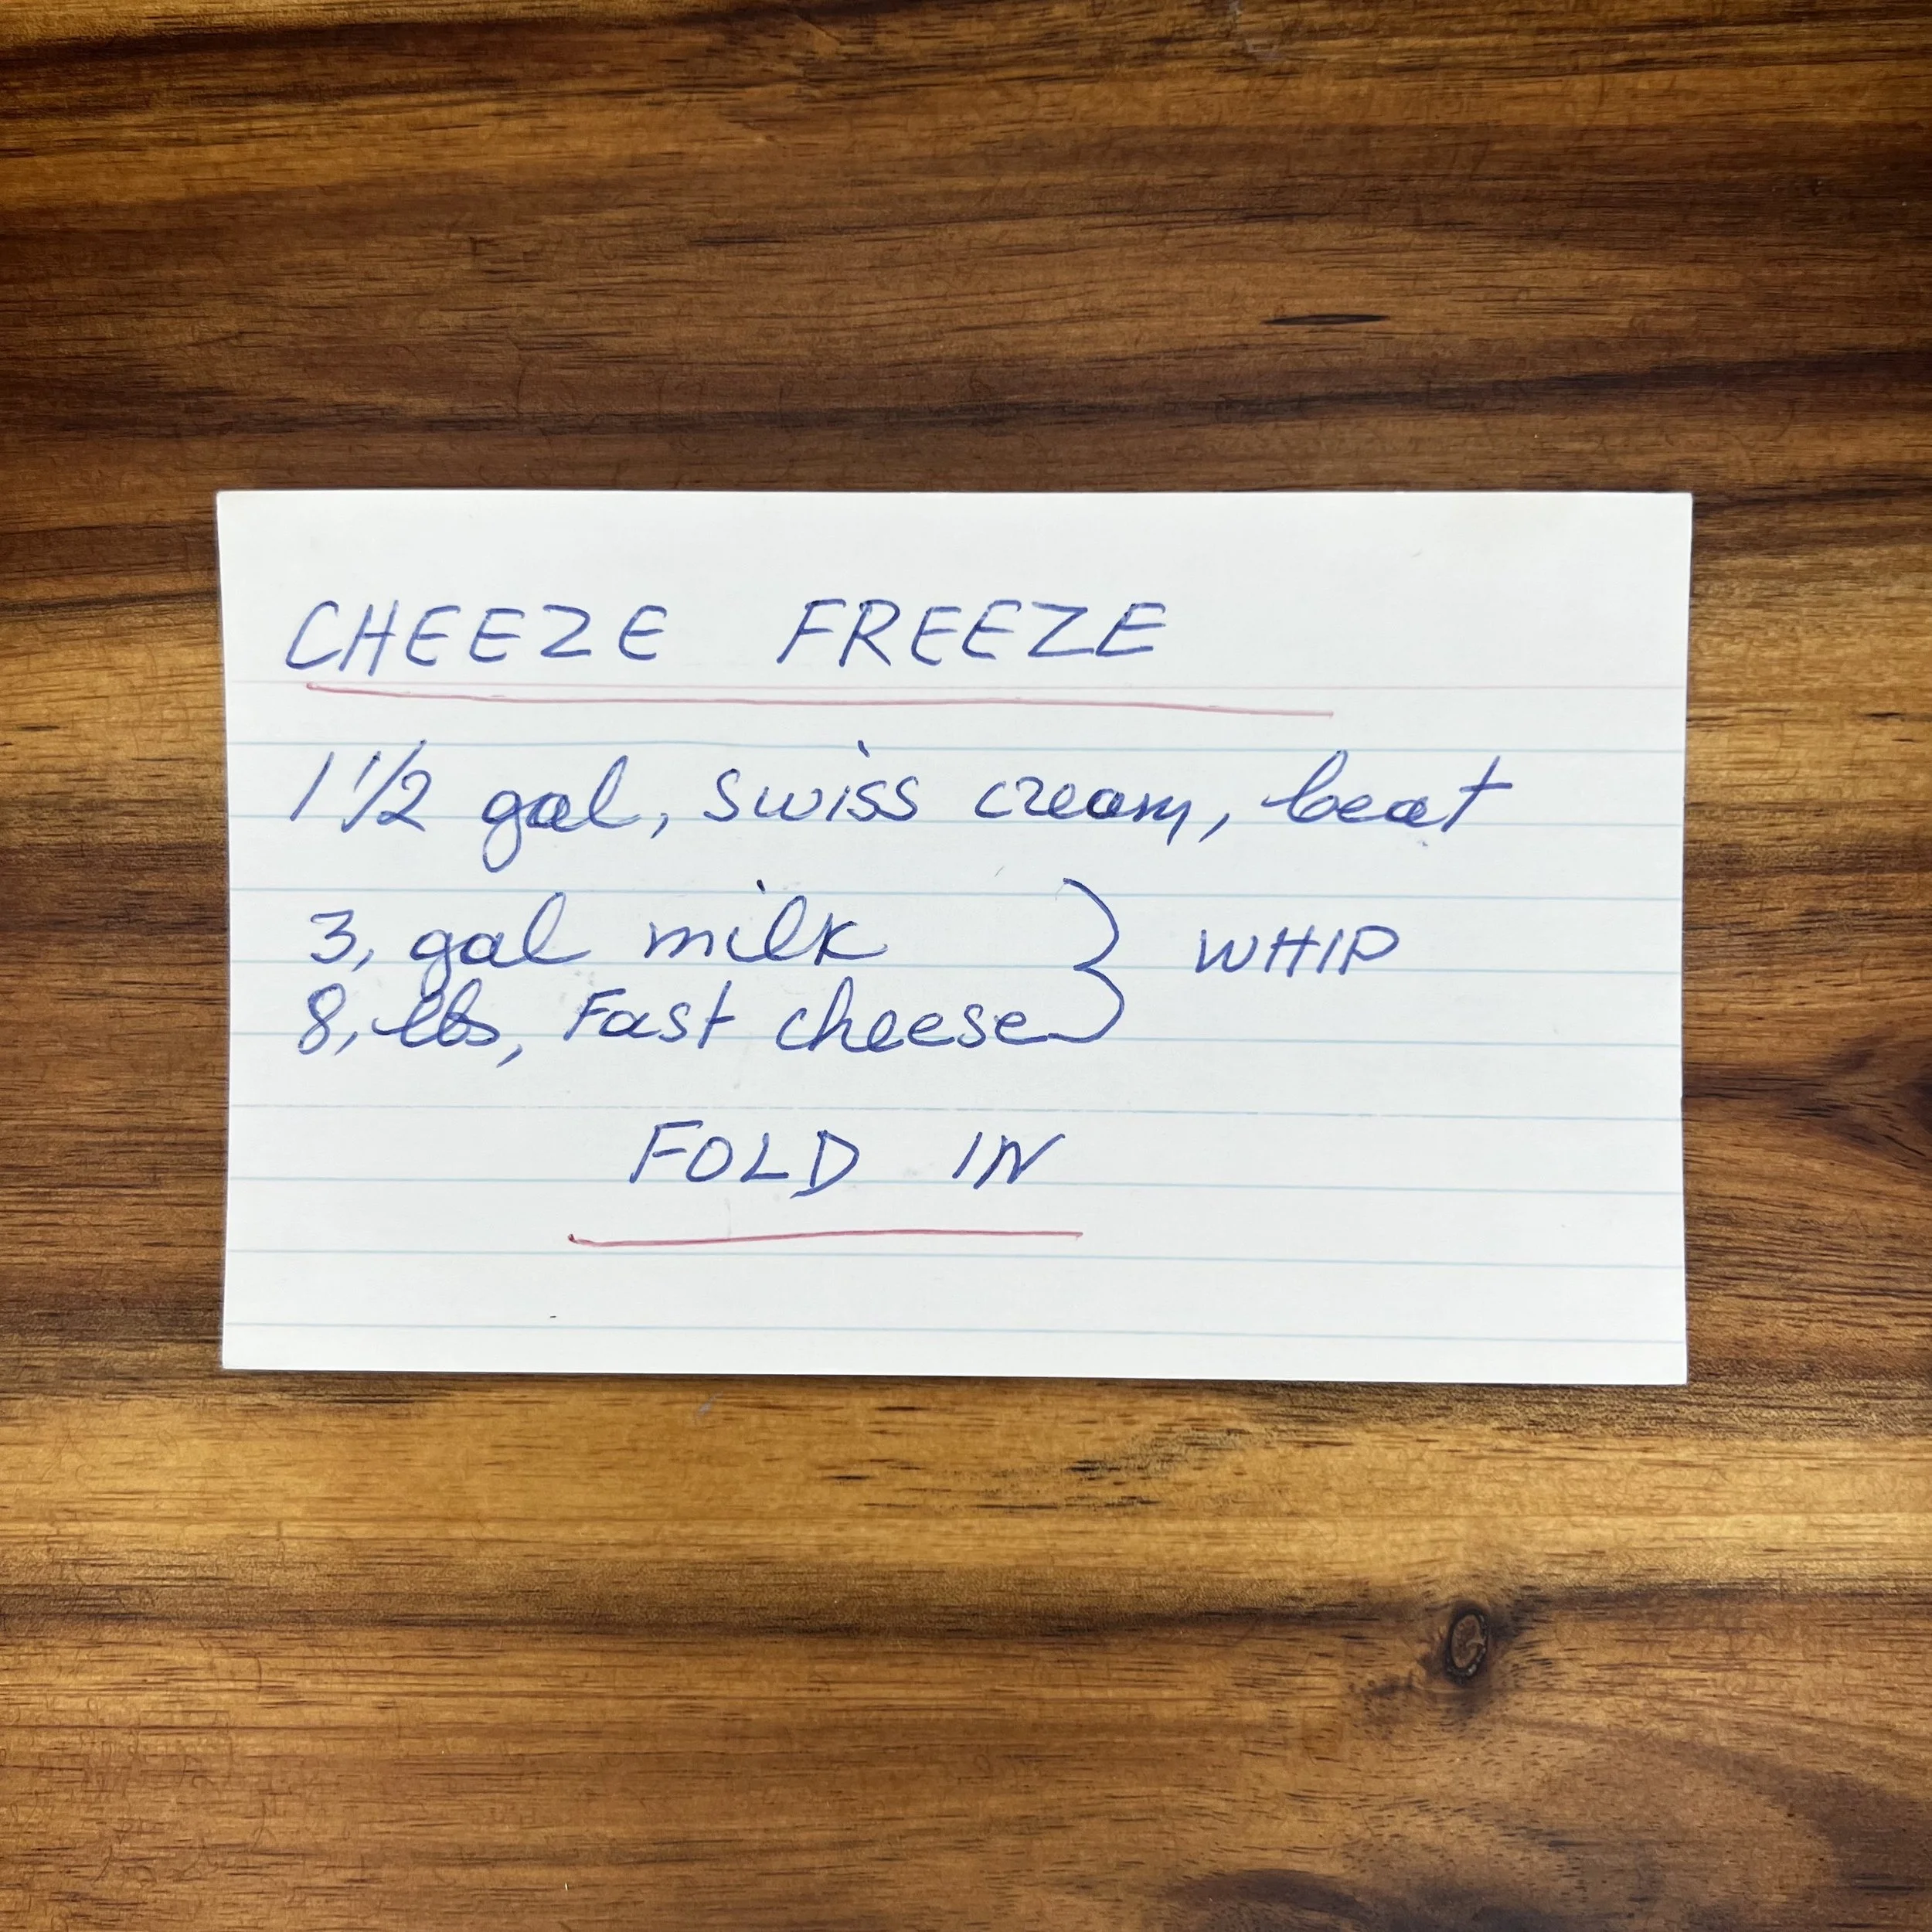 CHEEZE FREEZE
1 1/2 gal, swiss cream, beat
3, gal milk } WHIP
8, lbs, Fast cheese
FOLD IN